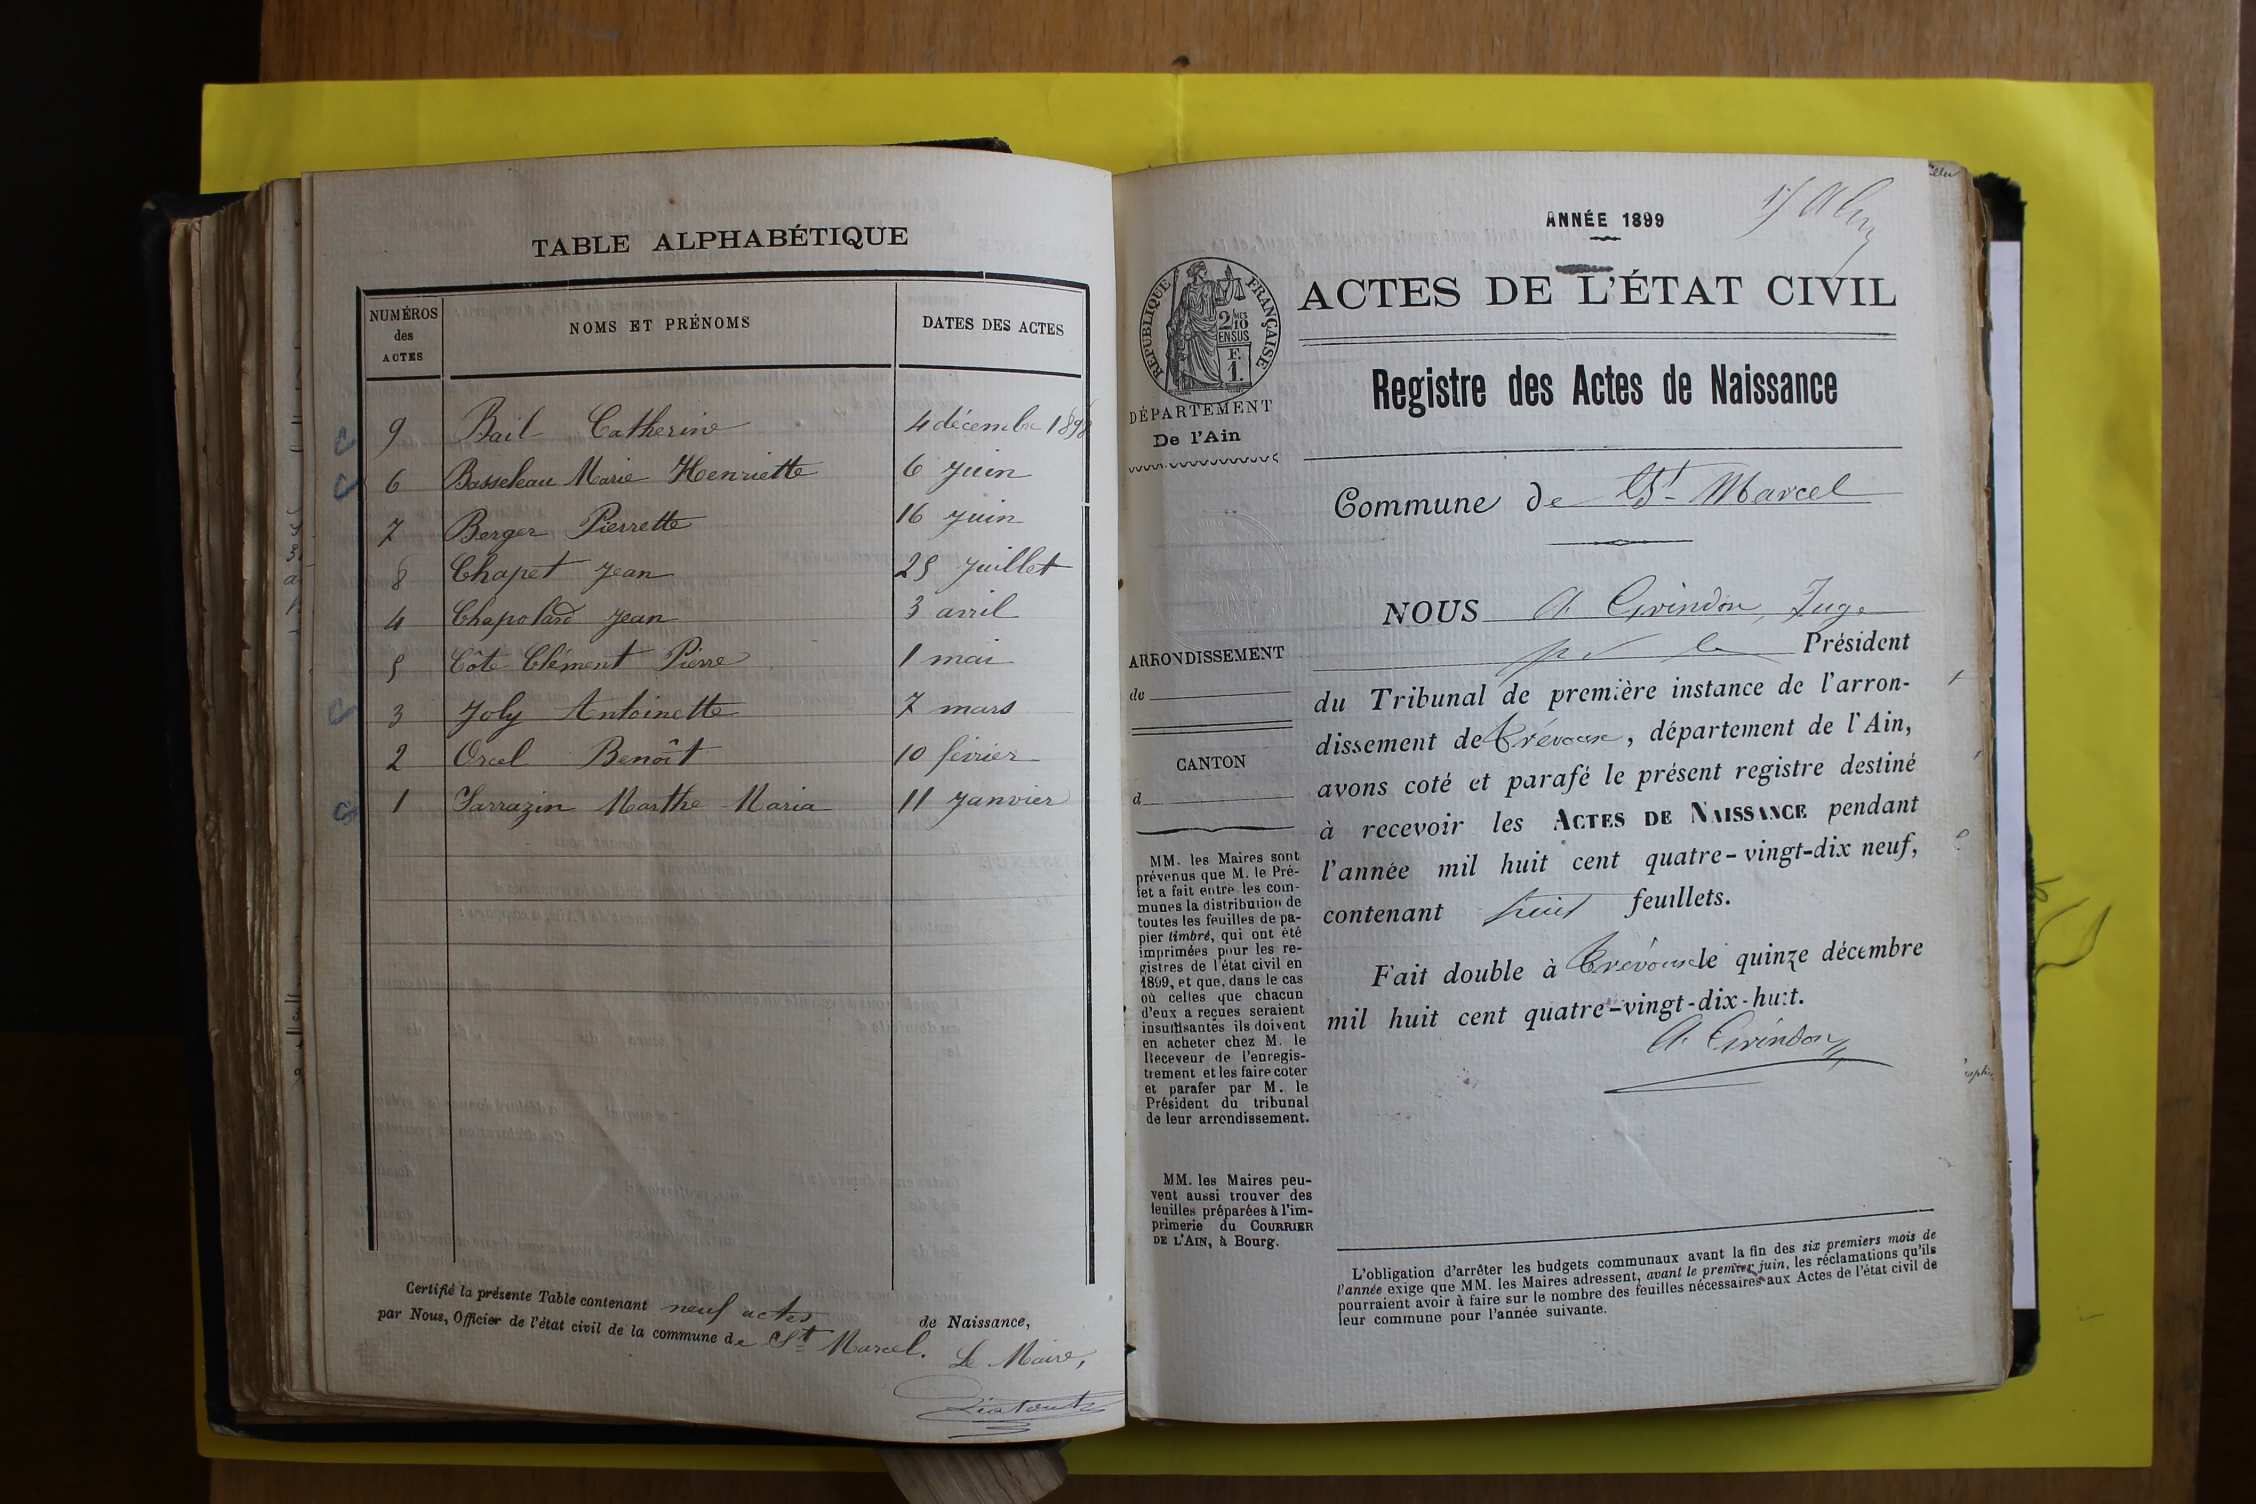 TABLE ALPHABÉTIQUE
NUMÉROS des ACTES NOMS ET PRÉNOMS DATES DES ACTES
9 Bail Catherine 4 décembre 1898
6 Basseleau Marie Henriette 6 juin
7 Berger Pierrette 16 juin
8 Chapet Jean 25 juillet
4 Chapolard Jean 3 avril
5 Côte Clément Pierre 1 mai
3 Joly Antoinette 7 mars
2 Orcel Benoît 10 février
1 Sarrazin Marthe Maria 11 Janvier
Certifié la présente Table contenant neuf actes de Naissance,
par Nous, Officier de l'état civil de la commune de St Marcel. Le Maire,
ANNÉE 1899
ACTES DE L'ÉTAT CIVIL
RÉPUBLIQUE FRANÇAISE
2/10
EN SUS
F.
1.
DÉPARTEMENT
De l'Ain
Registre des Actes de Naissance
Commune de St Marcel
ARRONDISSEMENT
de
CANTON
d
MM. les Maires sont
prévenus que M. le Pré-
fet a fait entre les com-
munes la distribution de
toutes les feuilles de pa-
pier timbré, qui ont été
imprimées pour les re-
gistres de l'état civil en
1899, et que, dans le cas
où celles que chacun
d'eux a reçues seraient
insuffisantes ils doivent
en acheter chez M. le
Receveur de l'enregis-
trement et les faire coter
et parafer par M. le
Président du tribunal
de leur arrondissement.
MM. les Maires peu-
vent aussi trouver des
feuilles préparées à l'im-
primerie du COURRIER
DE L'AIN, à Bourg.
NOUS A. Grindon, Juge
pr le Président
du Tribunal de première instance de l'arron-
dissement de Trévoux, département de l'Ain,
avons coté et parafé le présent registre destiné
à recevoir les ACTES DE NAISSANCE pendant
l'année mil huit cent quatre-vingt-dix neuf,
contenant huit feuillets.
Fait double à Trévoux le quinze décembre
mil huit cent quatre-vingt-dix-huit.
A. Grindon
L'obligation d'arrêter les budgets communaux avant la fin des six premiers mois de
l'année exige que MM. les Maires adressent, avant le premier juin, les réclamations qu'ils
pourraient avoir à faire sur le nombre des feuilles nécessaires aux Actes de l'état civil de
leur commune pour l'année suivante.